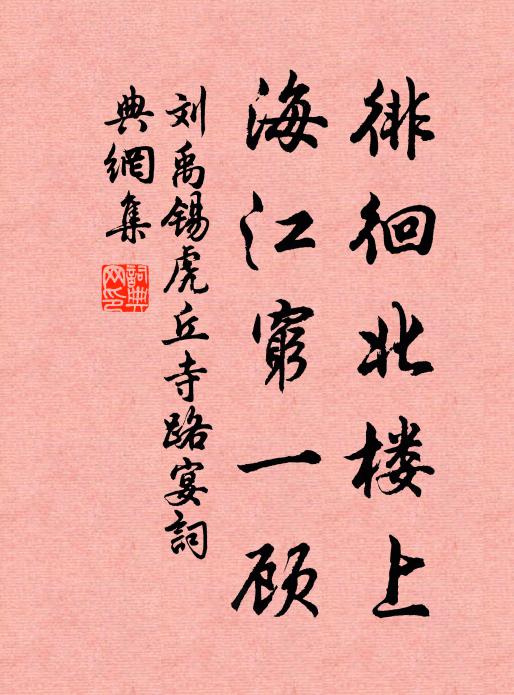 徘徊北楼上
海江穷一顾
刘禹锡虎丘寺路宴词
典網集
詞典網印